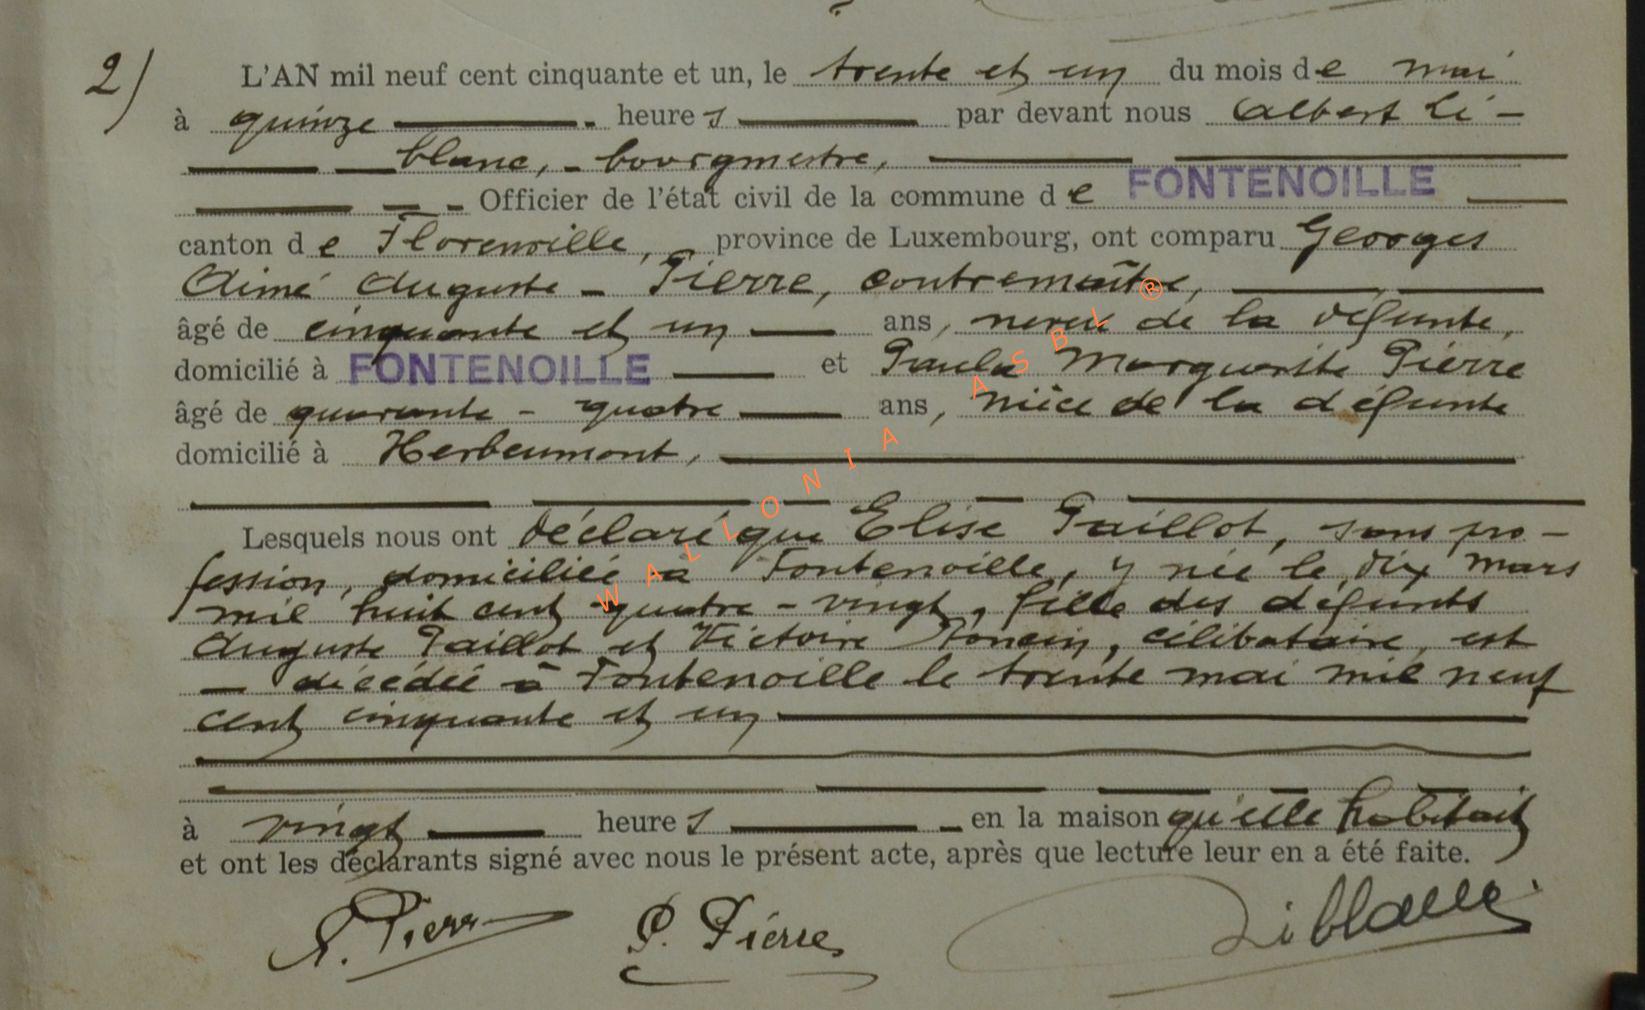 2) L'AN mil neuf cent cinquante et un, le trente et un du mois de mai
à quinze heures par devant nous Albert Li-
blanc, bourgmestre,
Officier de l'état civil de la commune de FONTENOILLE
canton de Florenville, province de Luxembourg, ont comparu Georges
Aimé Auguste Pierre, contremaître,
âgé de cinquante et un ans, neveu de la défunte,
domicilié à FONTENOILLE et Paula Marguerite Pierre
âgé de quarante-quatre ans, nièce de la défunte
domicilié à Herbeumont,
Lesquels nous ont déclaré que Elise Paillot, sans pro-
fession, domiciliée à Fontenoille, y née le dix mars
mil huit cent quatre-vingt, fille des défunts
Auguste Paillot et Victoire Poncin, célibataire, est
décédée à Fontenoille le trente mai mil neuf
cent cinquante et un
à vingt heures en la maison qu'elle habitait
et ont les déclarants signé avec nous le présent acte, après que lecture leur en a été faite.
Pierre P. Pierre Liblanc
WALLONIA ASBL ®